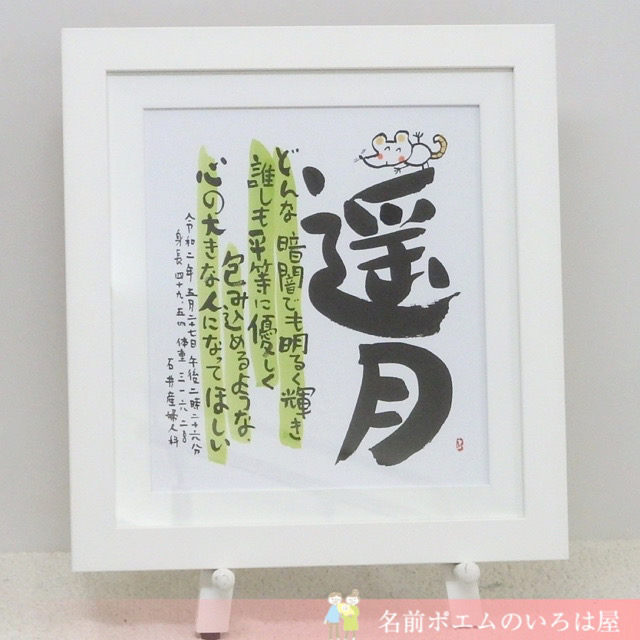 遥月
どんな 暗闇でも明るく輝き
誰しも平等に優しく
包み込めるような
心の大きな人になってほしい
令和二年 五月二十七日 午後二時二十六分
身長 四十九.五㎝ 体重 三一六二g
石井産婦人科
名前ポエムのいろは屋